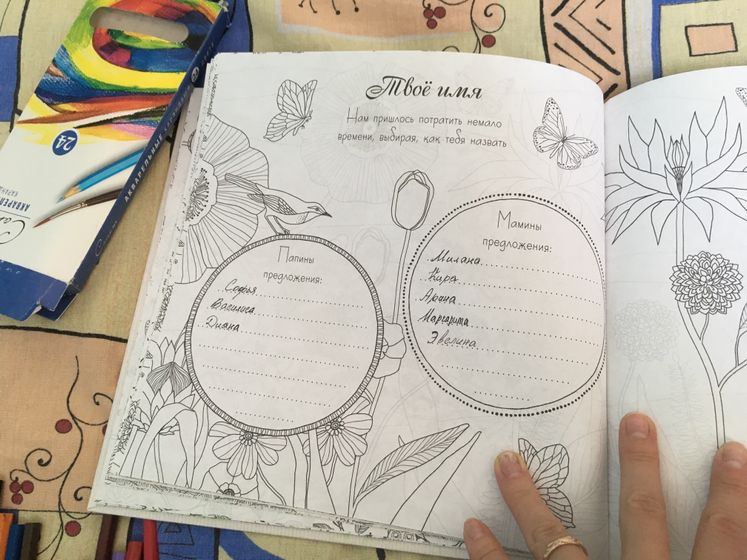 Твоё имя
Нам пришлось потратить немало
времени, выбирая, как тебя назвать
Папины
предложения:
Софья
Василиса
Диана
Мамины
предложения:
Милана
Кира
Арина
Маргарита
Эвелина
24
АКВАРЕЛЬНЫЕ